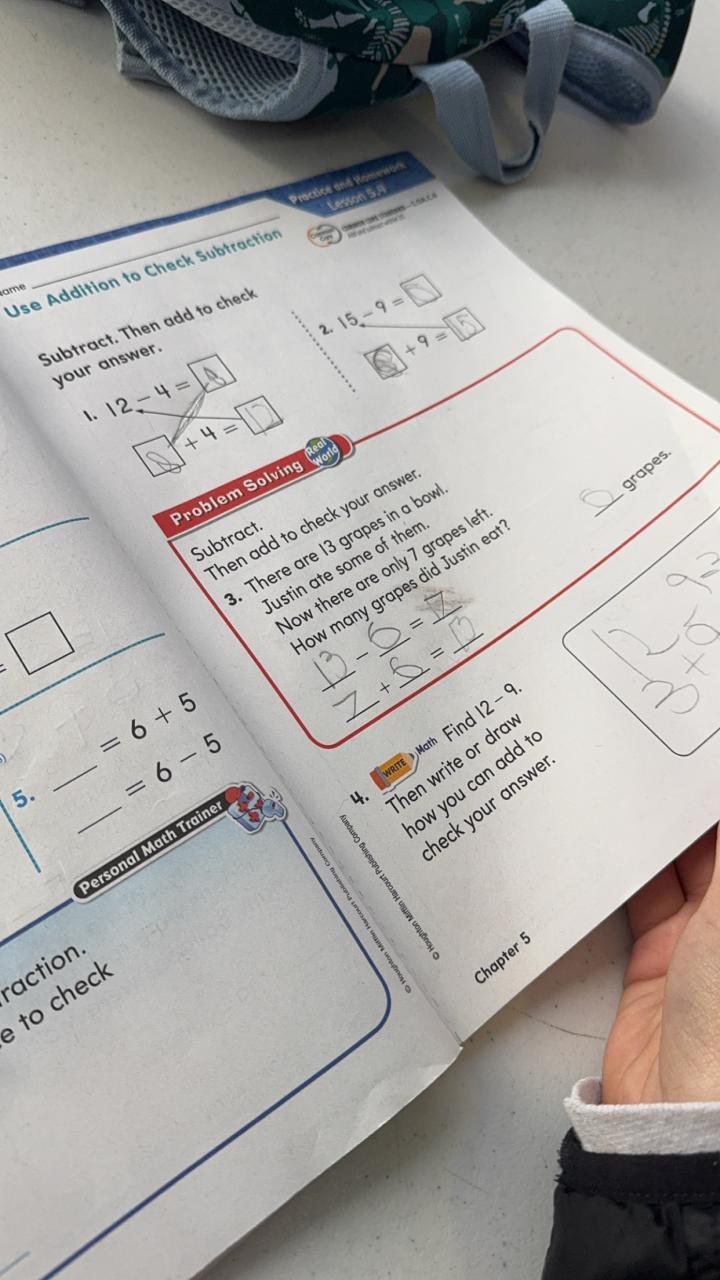 Practice and Homework
Lesson 5.4
COMMON CORE STANDARD—1.OA.C.6
Add and subtract within 20.
Name
Use Addition to Check Subtraction
Subtract. Then add to check
your answer.
1. 12 - 4 = 8
8 + 4 = 12
2. 15 - 9 = 6
6 + 9 = 15
Problem Solving Real World
Subtract.
Then add to check your answer.
3. There are 13 grapes in a bowl.
Justin ate some of them.
Now there are only 7 grapes left.
How many grapes did Justin eat?
13 - 6 = 7
7 + 6 = 13
6 grapes.
4. WRITE Math Find 12 - 9.
Then write or draw
how you can add to
check your answer.
12 9=
3+
© Houghton Mifflin Harcourt Publishing Company
Chapter 5
=
5. ___ = 6 + 5
___ = 6 - 5
Personal Math Trainer
raction.
e to check
© Houghton Mifflin Harcourt Publishing Company